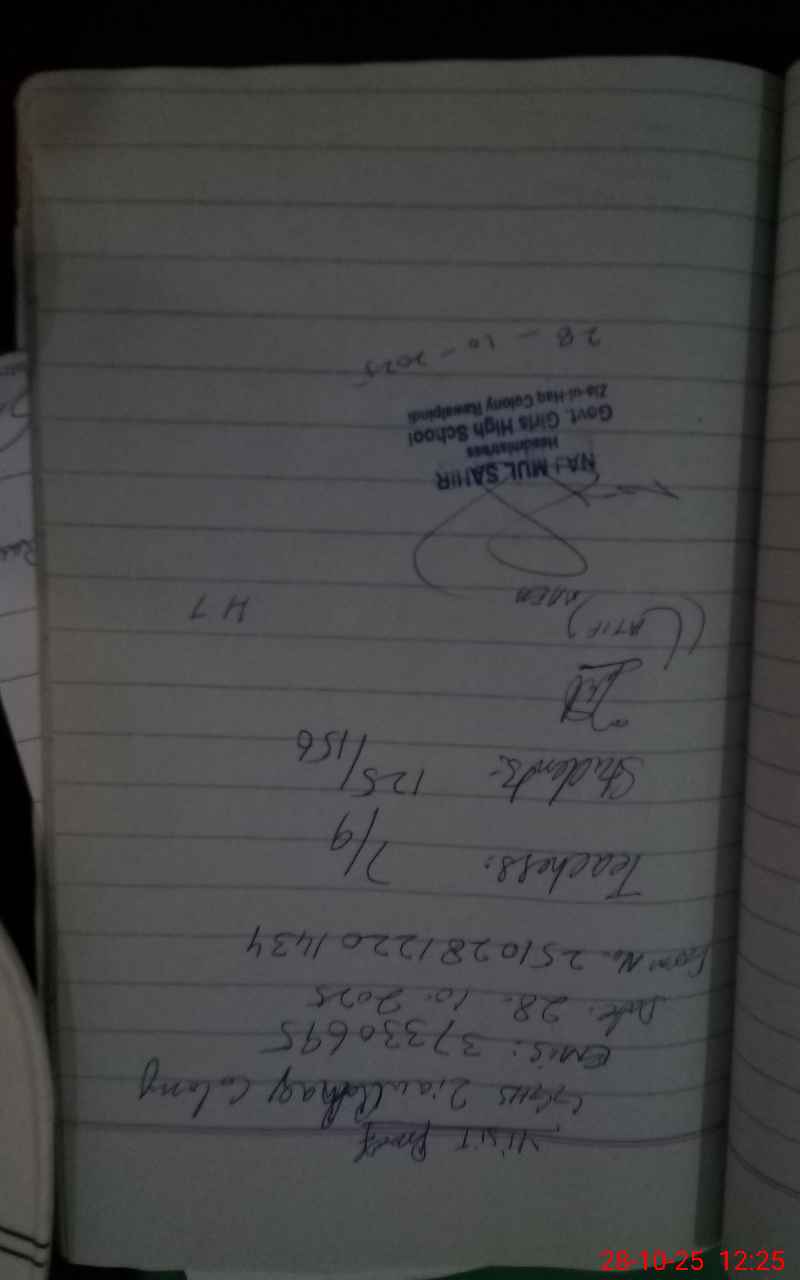 Visit Proof
GGHS Ziaulhaq Colony
EMIS: 37330695
Date: 28.10.2025
Form No. 251028122201434
Teachers: 7/9
Students: 125/156
(LATIF)
H T
NAJMUL SAHIR
Headmistress
Govt. Girls High School
Zia-ul-Haq Colony Rawalpindi
28-10-2025
28-10-25 12:25